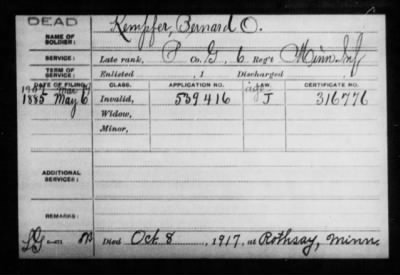 DEAD
NAME OF SOLDIER: Kempfer, Bernard O.
SERVICE: Late rank, P Co. G, 6 Reg't Minn Inf
TERM OF SERVICE: Enlisted , 1 Discharged
DATE OF FILING. CLASS. APPLICATION NO. LAW. CERTIFICATE NO.
1885 May 6 Invalid, 539416 J 316776
Widow,
Minor,
ADDITIONAL SERVICES:
REMARKS:
Died Oct 8, 1917, at Rothsay, Minn.